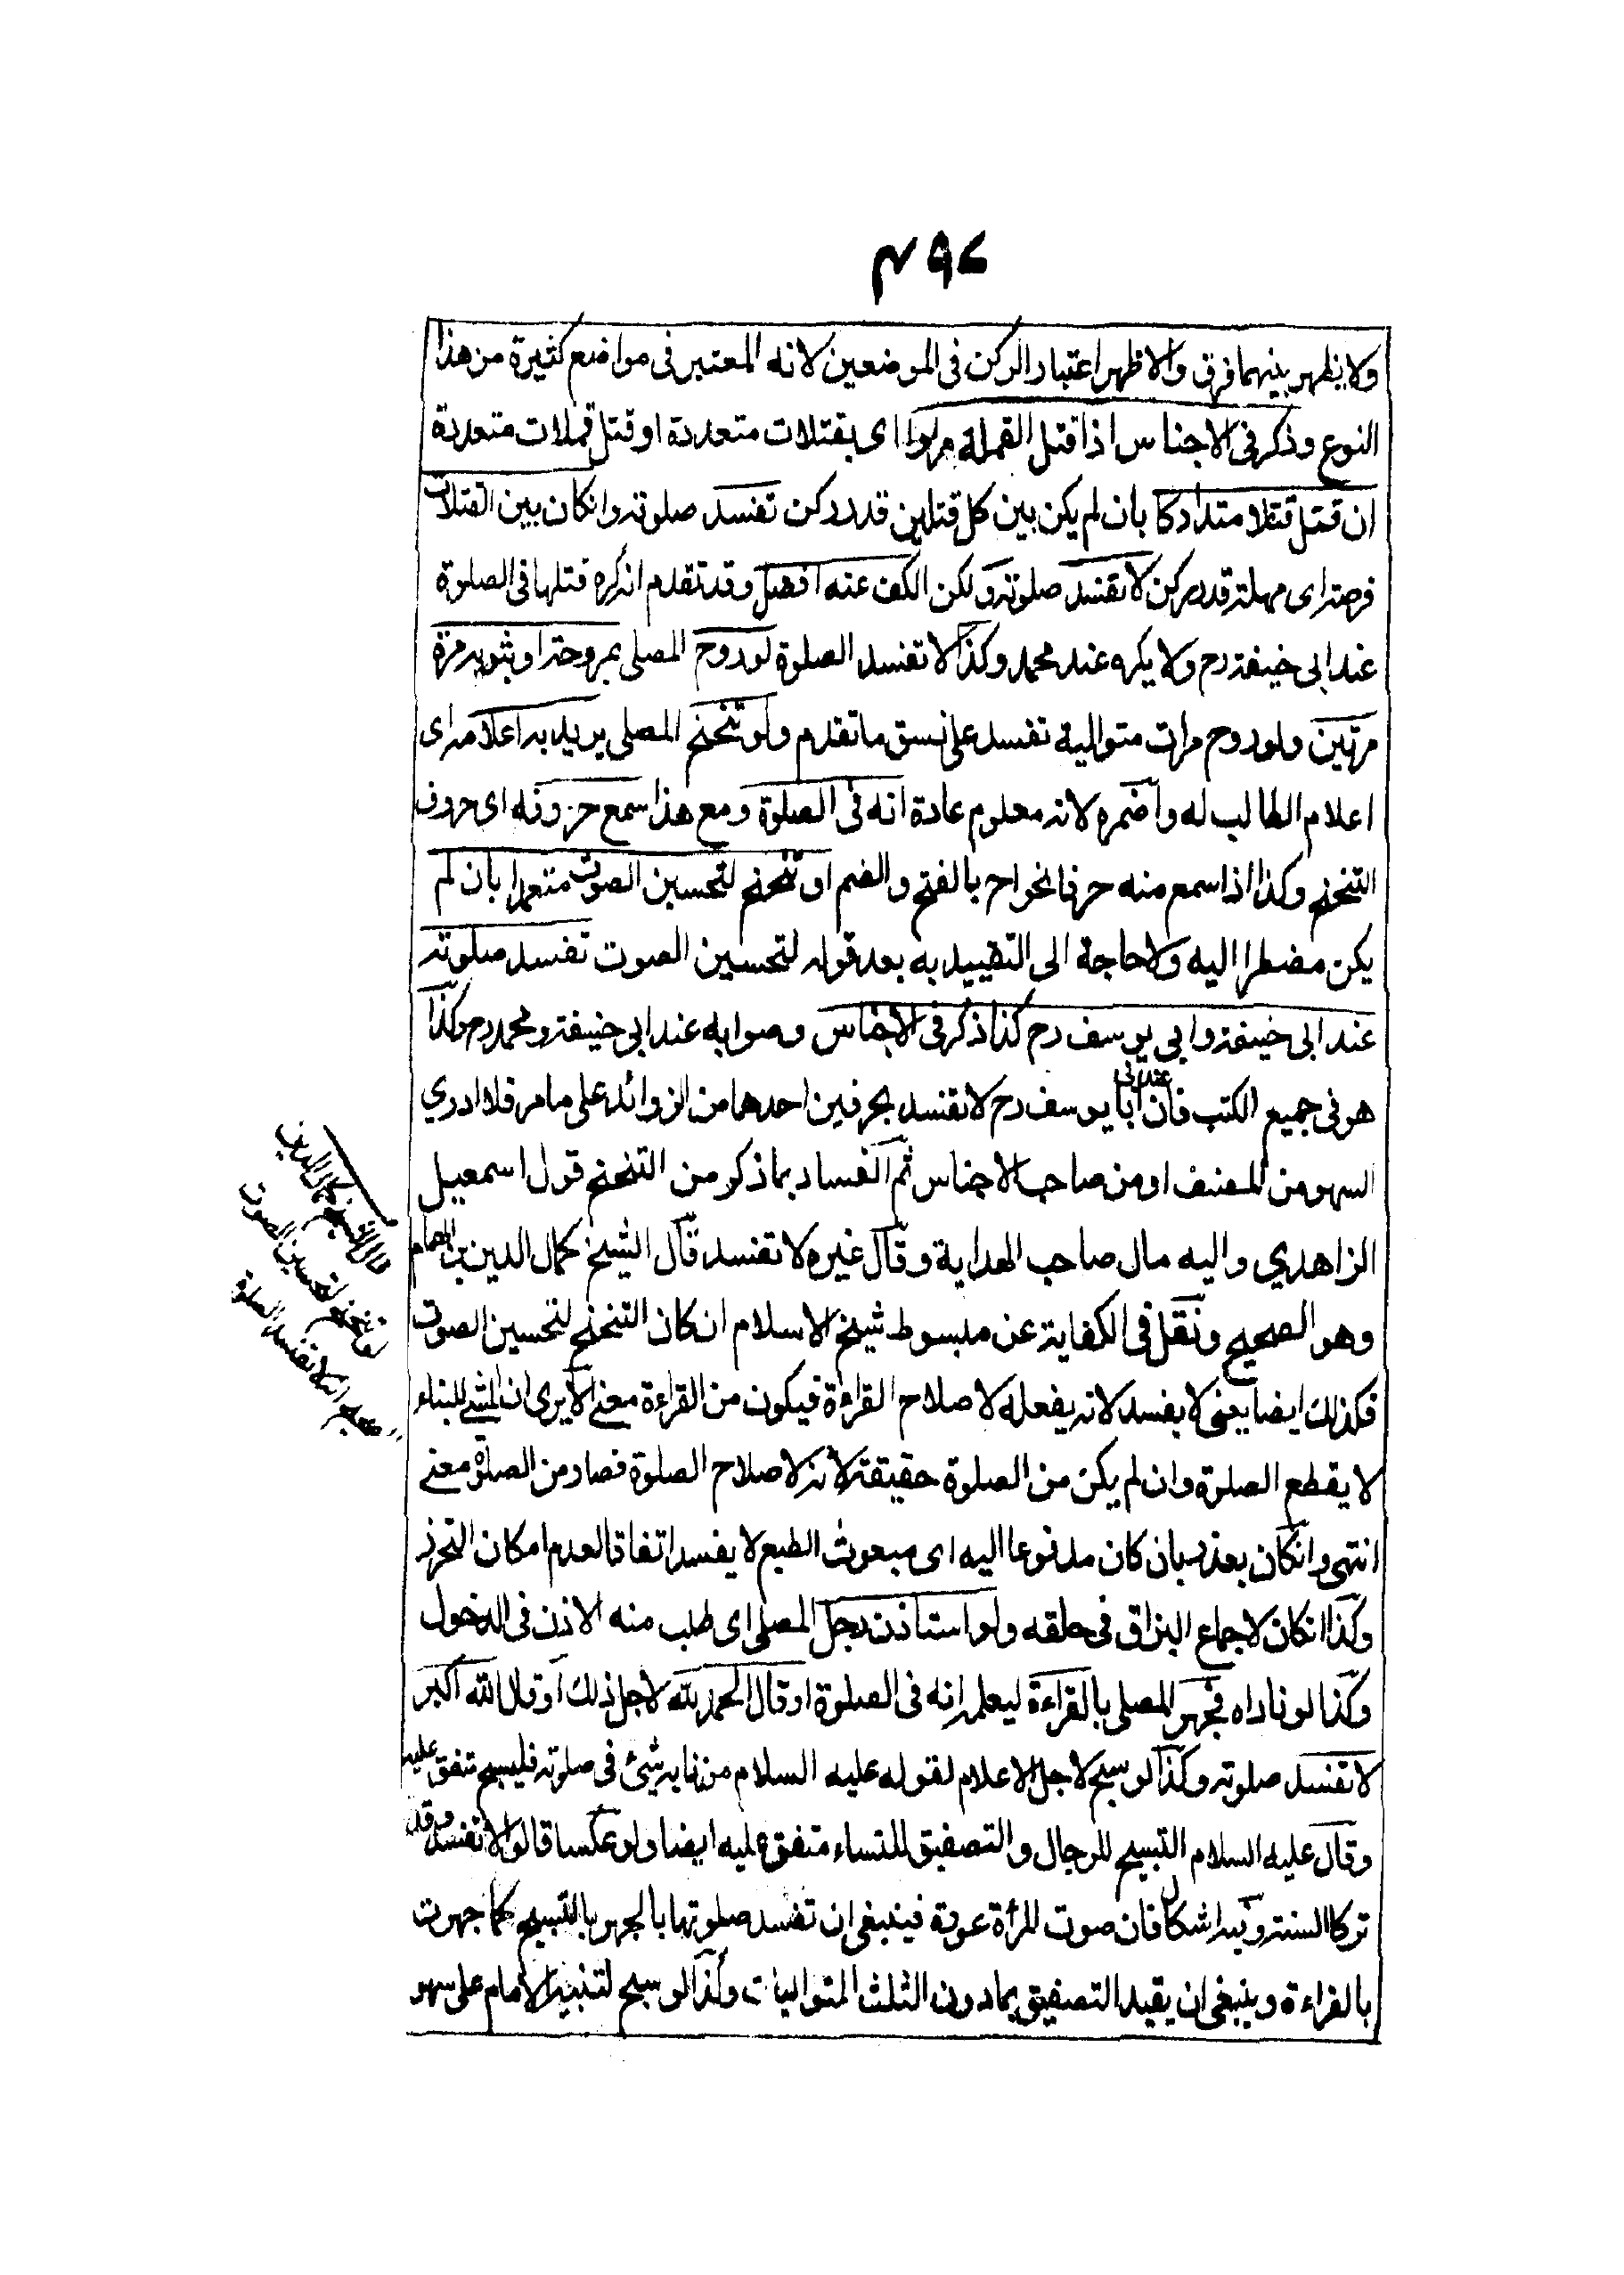 ولا يظهر بينهما فرق والاظهر اعتبار الركن فى الموضعين لانه المعتبر فى مواضع كثيرة من هذا
النوع وذكر فى الاجناس اذا قتل القملة مرارا اى بقتلات متعددة او قتل قملات متعددة
ان قتل قتلا متداركا بان لم يكن بين كل قتلين قدر ركن تفسد صلوته وانكان بين القتلات
فرصة اى مهلة قدر ركن لا تفسد صلوته ولكن الكف عنه افضل وقد تقدم انه كره قتلها فى الصلوة
عند ابى حنيفة رح ولا يكره عند محمد وكذا لا تفسد الصلوة لو روح المصلى بمروحة او بثوبه مرة
مرتين ولو روح مرات متوالية تفسد على نسق ما تقدم ولو تنحنح المصلى يريد به اعلامه اى
اعلام الطالب له واضمره لانه معلوم عادة انه فى الصلوة ومع هذا سمع حروفه اى حروف
التنحنح وكذا اذا سمع منه حرفا نحو اح بالفتح والضم او تنحنح لتحسين الصوت متعمدا بان لم
يكن مضطرا اليه ولا حاجة الى التقييد به بعد قوله لتحسين الصوت تفسد صلوته
عند ابى حنيفة وابى يوسف رح كذا ذكر فى الاجناس وصوابه عند ابى حنيفة ومحمد رح وكذا
هو فى جميع الكتب فان عند ابى ابا يوسف رح لا تفسد بحرفين احدهما من الزوائد على ما مر فلا ادري
السهو من المصنف او من صاحب الاجناس ثم الفساد بما ذكر من التنحنح قول اسمعيل
الزاهدي واليه مال صاحب الهداية وقال غيره لا تفسد قال الشيخ كمال الدين بن الهمام
وهو الصحيح ونقل فى الكفاية عن مبسوط شيخ الاسلام ان كان التنحنح لتحسين الصوت
فكذلك ايضا يعنى لا يفسد لانه يفعله لاصلاح القراءة فيكون من القراءة معنے الا يرى ان المشے للبناء
لا يقطع الصلوة وان لم يكن من الصلوة حقيقة لانه لاصلاح الصلوة فصار من الصلوة معنے
انتهى وانكان بعذر بان كان مدفوعا اليه اى مبعوث الطبع لا يفسد اتفاقا لعدم امكان التحرز
وكذا انكان لاجماع البزاق فى حلقه ولو استاذن رجل المصلى اى طلب منه الاذن فى الدخول
وكذا لو ناداه فجهر المصلى بالقراءة ليعلمه انه فى الصلوة او قال الحمد لله لاجل ذلك او قال الله اكبر
لا تفسد صلوته وكذا لو سبح لاجل الاعلام لقوله عليه السلام من نابه شئ فى صلوته فليسبح متفق عليه
وقال عليه السلام التسبيح للرجال والتصفيق للنساء متفق عليه ايضا ولو عكسا قالوا لا تفسد وقد
تركا السنة وفيه اشكال فان صوت المرأة عورة فينبغى ان تفسد صلوتها بالجهر بالتسبيح كما جهرت
بالقراءة وينبغى ان يقيد التصفيق بما دون الثلث المتواليات وكذا لو سبح لتنبيه الامام على سهو
قال الشيخ كمال الدين
لو تنحنح لتحسين الصوت
لا تفسد الصلوة